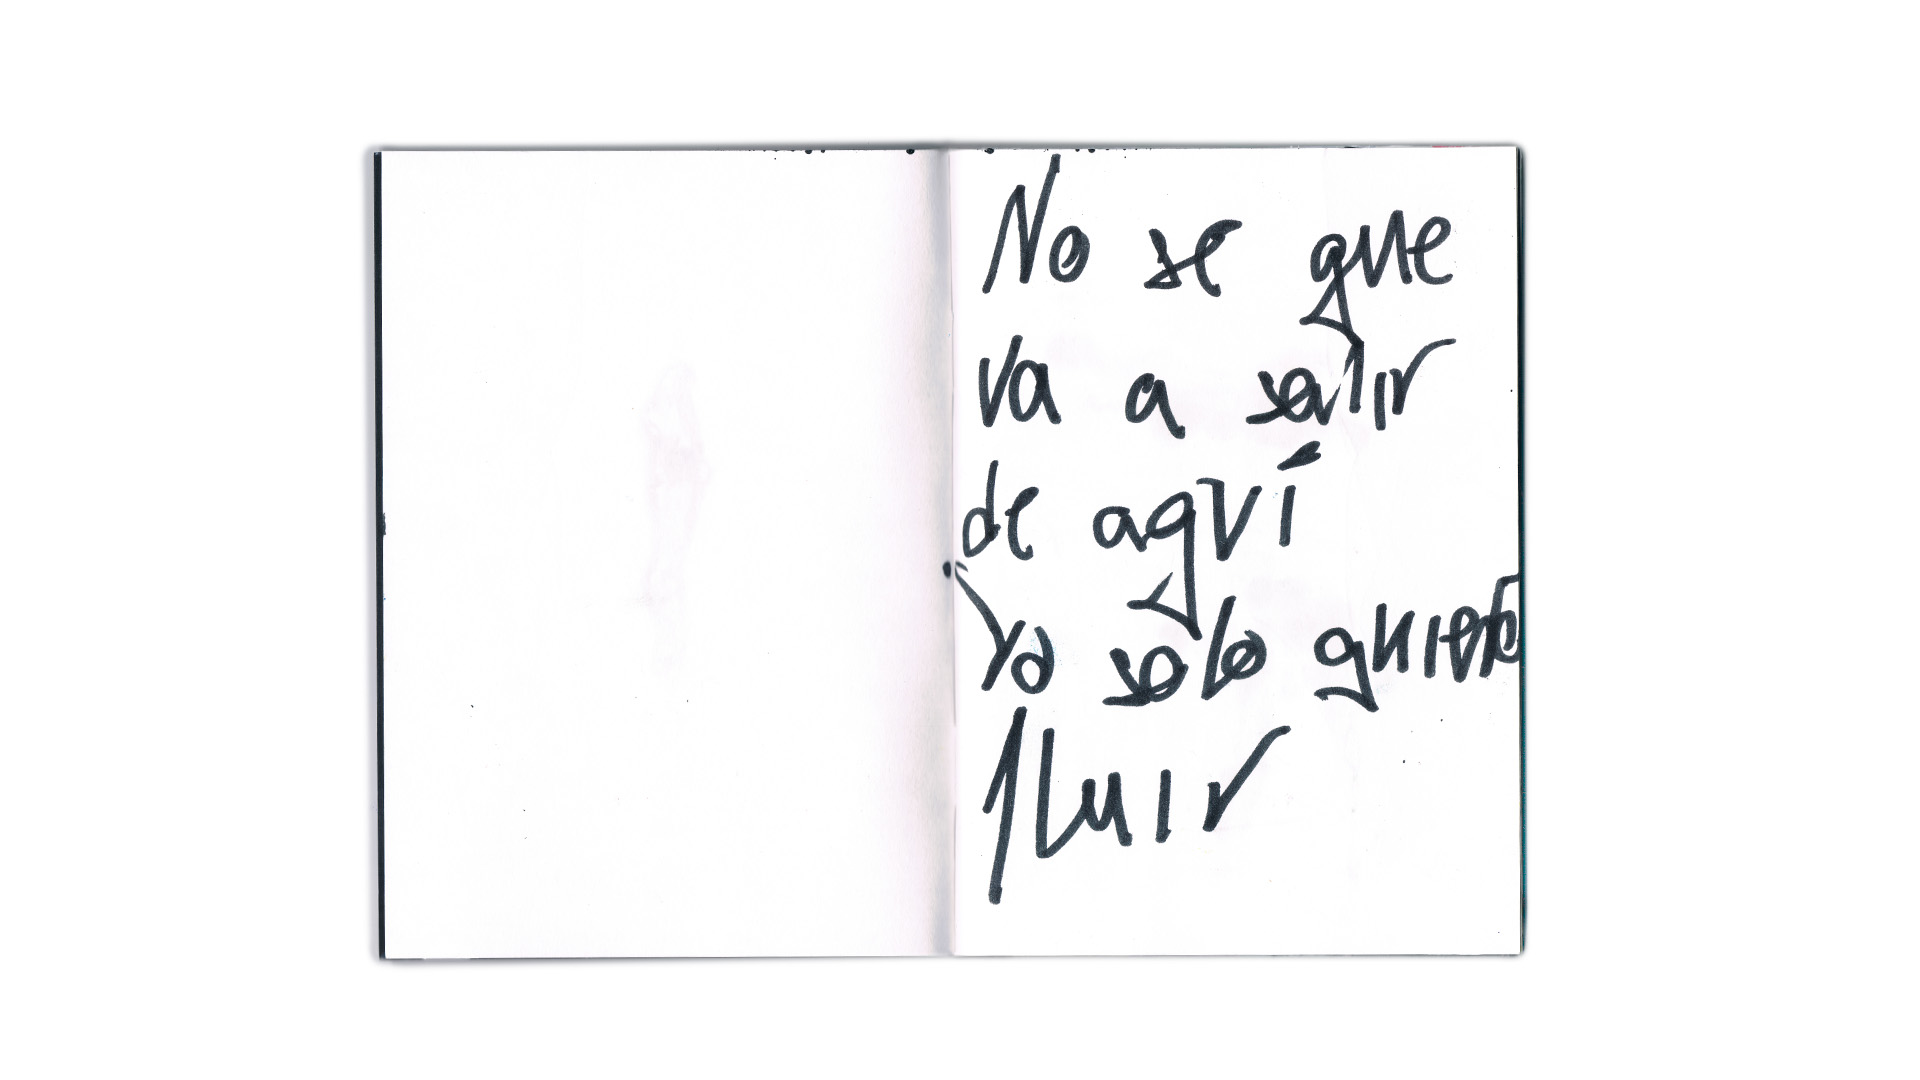 No se que
va a salir
de aquí
Yo solo quiero
fluir